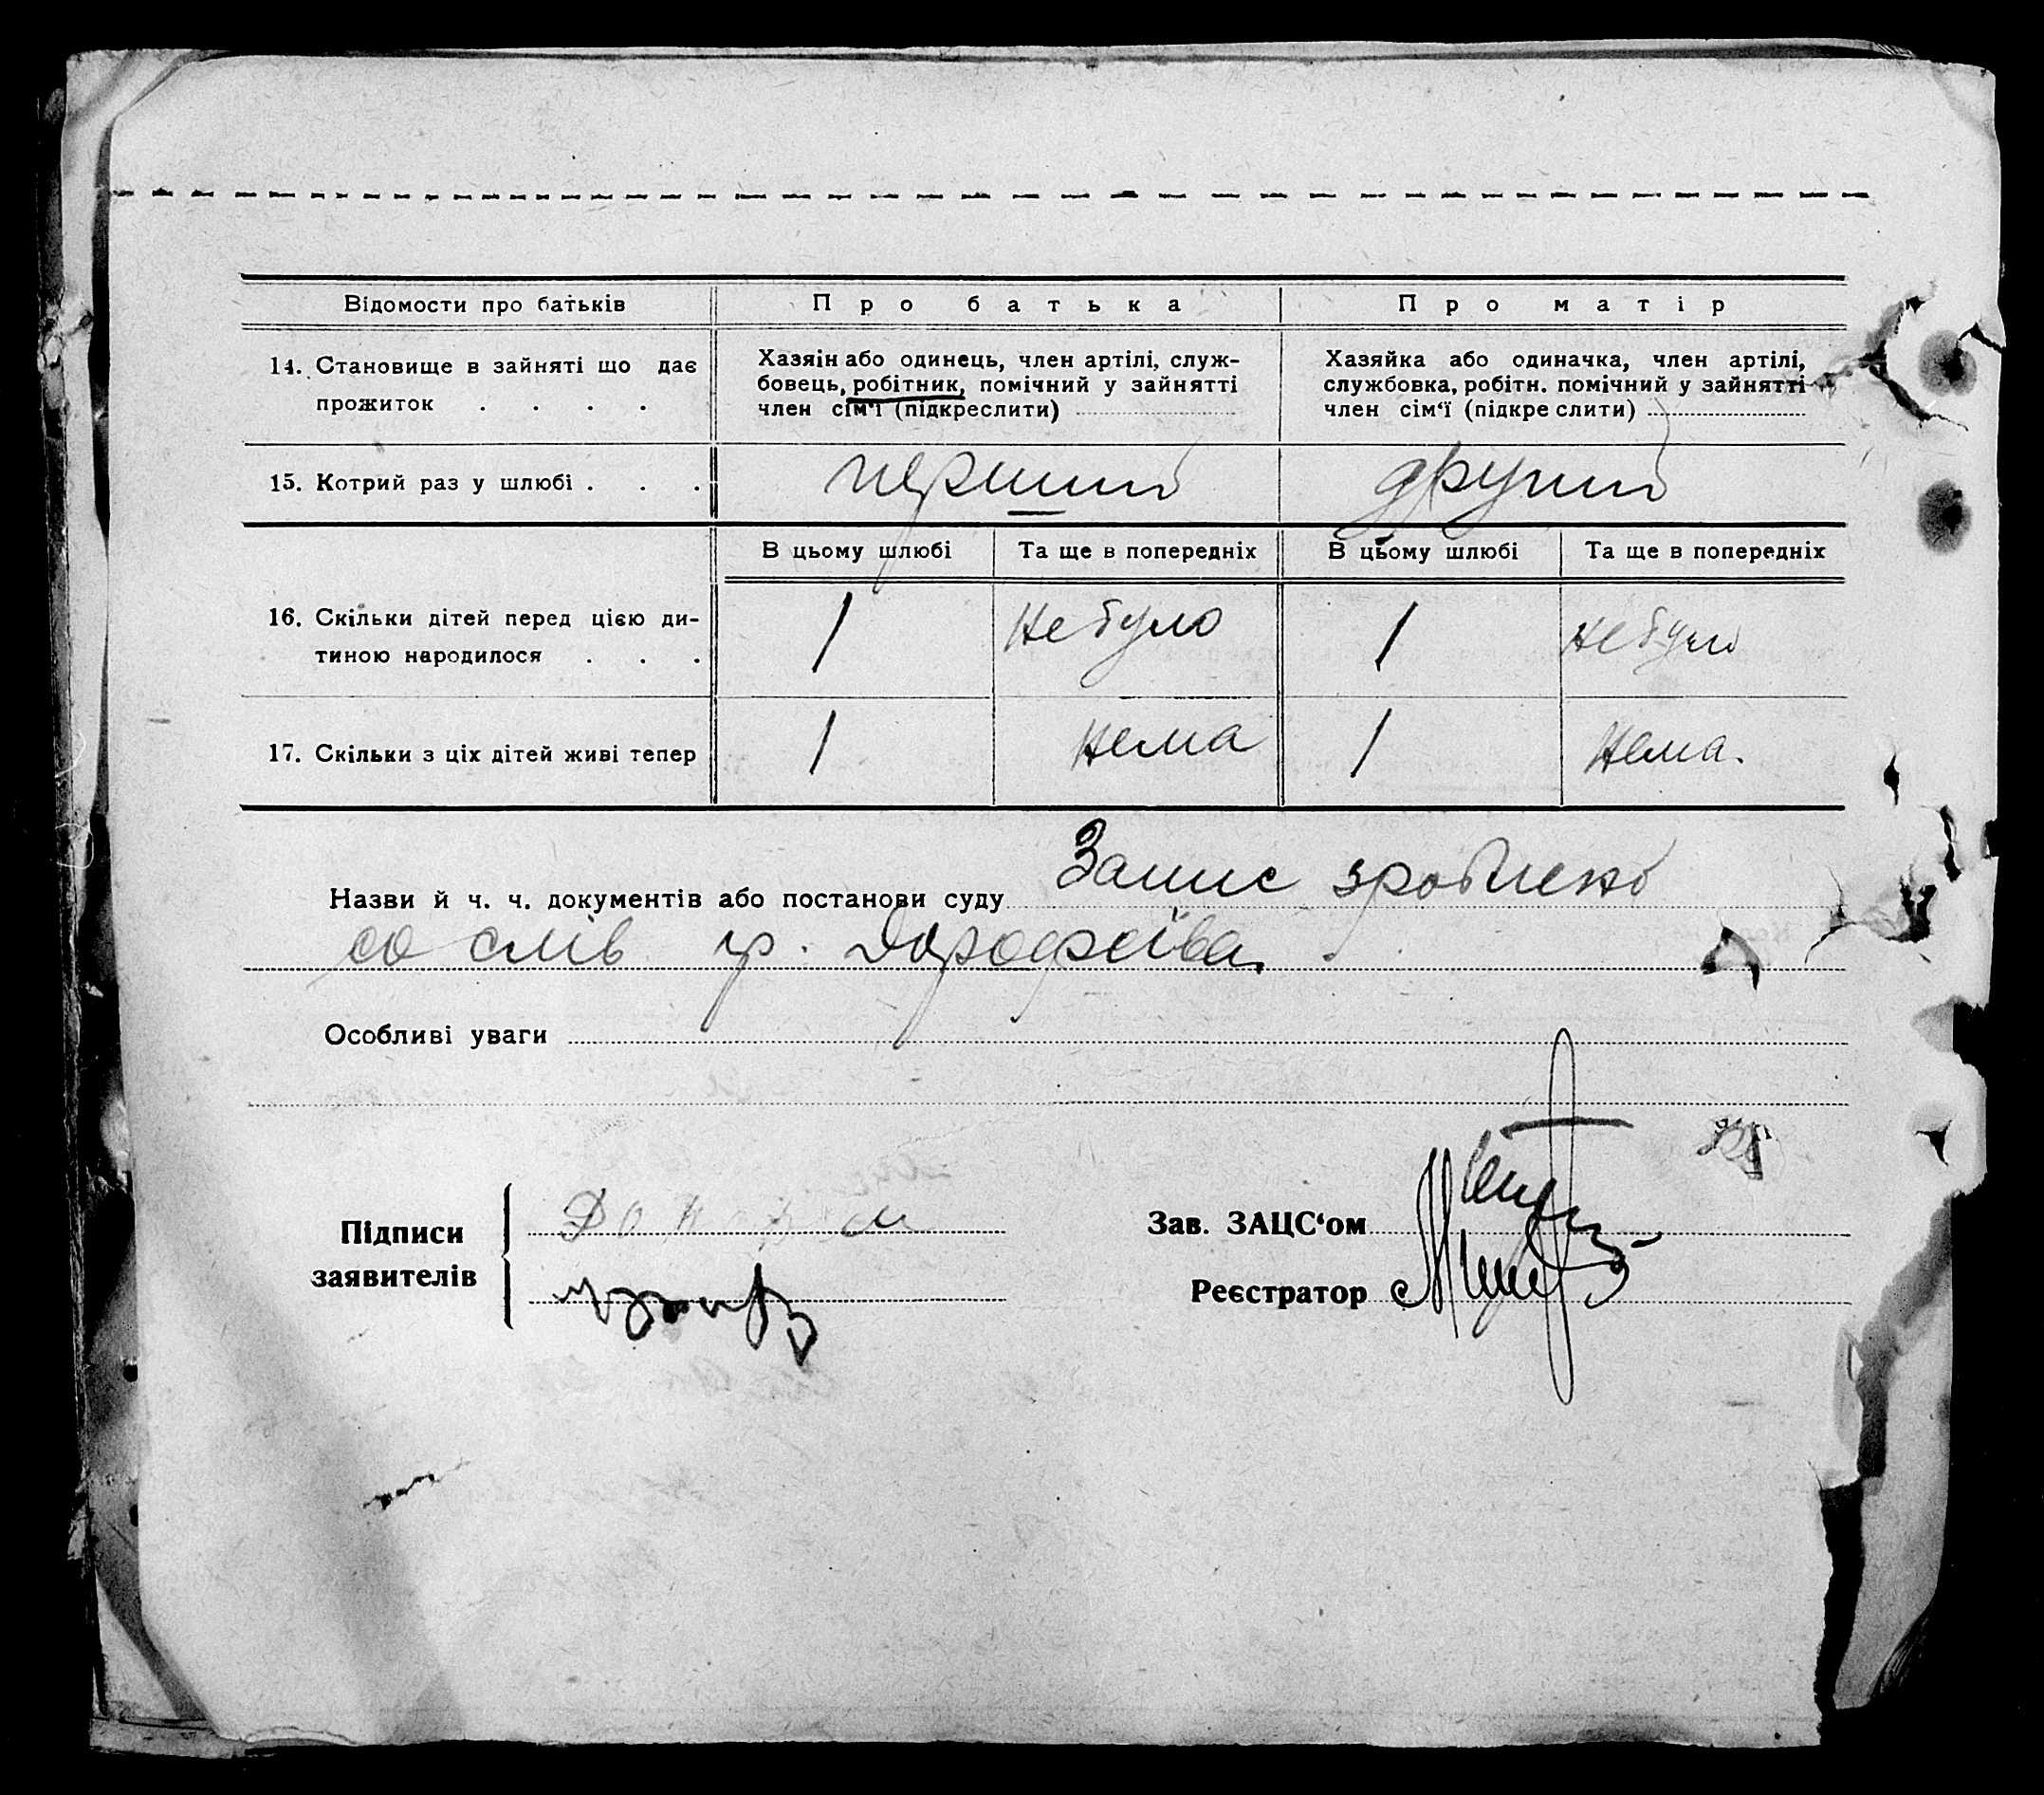 Відомости про батьків Про батька Про матір
14. Становище в зайняті що дає прожиток . . . .
Хазяін або одинець, член артілі, служ-
бовець, робітник, помічний у зайнятті
член сім‘ї (підкреслити)
Хазяйка або одиначка, член артілі,
службовка, робітн. помічний у зайнятті
член сім‘ї (підкре слити)
15. Котрий раз у шлюбі . . . перший другий
В цьому шлюбі Та ще в попередніх В цьому шлюбі Та ще в попередніх
16. Скільки дітей перед цією ди-
тиною народилося . . .
1 не було 1 не було
17. Скільки з ціх дітей живі тепер 1 нема 1 нема.
Назви й ч. ч. документів або постанови суду Запис зроблено
со слів гр. Дорофеїва.
Особливі уваги
Підписи
заявителів
Зав. ЗАЦС‘ом
Реєстратор